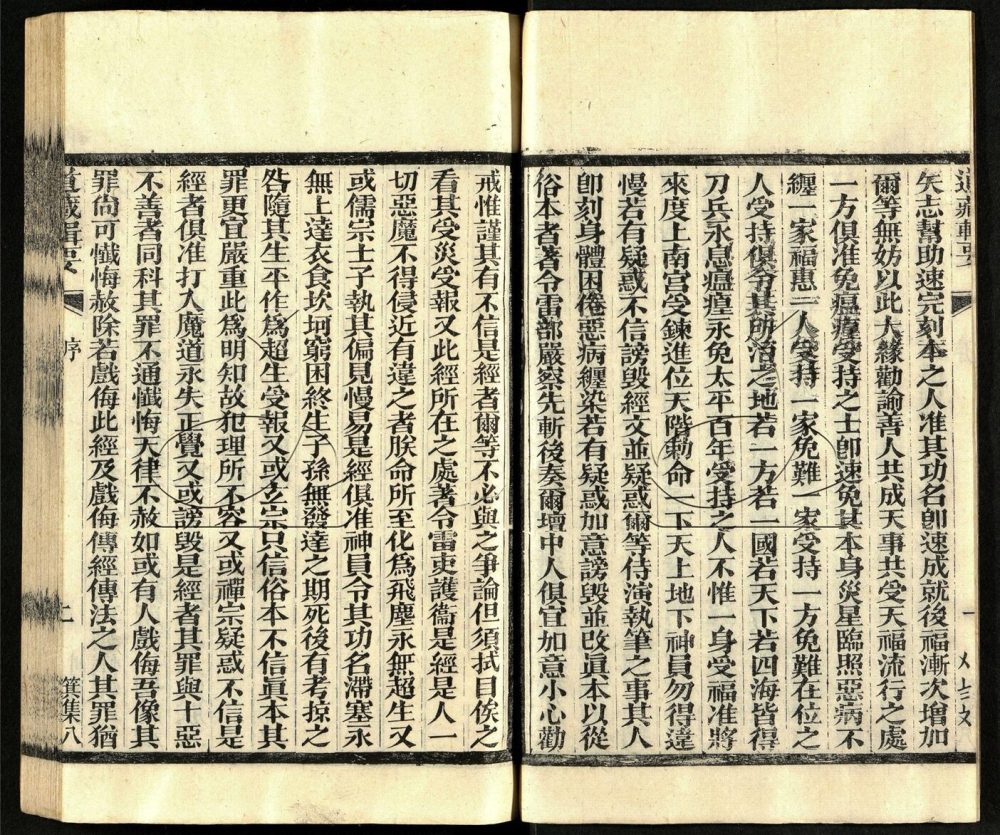 矢志幫助速完刻本之人准其功名卽速成就後福漸次增加
爾等無妨以此大緣勸諭善人共成天事共受天福流行之處
一方俱准免瘟㾮受持之士卽速免其本身災星臨照惡病不
纏一家福惠一人受持一家免難一家受持一方免難在位之
人受持復令其所治之地若一方若一國若天下若四海皆得
刀兵永息瘟㾮永免太平百年受持之人不惟一身受福准將
來度上南宮受鍊進位天階勅命一下天上地下神員勿得違
慢若有疑惑不信謗毀經文並疑惑爾等侍演執筆之事其人
卽刻身體困倦惡病纏染若有疑惑加意謗毀並改眞本以從
俗本者著令雷部嚴察先斬後奏爾壇中人俱宜加意小心勸
戒惟謹其有不信是經者爾等不必與之爭論但須拭目俟之
看其受災受報又此經所在之處著令雷吏護衞是經是人一
切惡魔不得侵近有違之者朕命所至化爲飛塵永無超生又
或儒宗士子執其偏見慢易是經俱准神員令其功名滯塞永
無上達衣食坎坷窮困終生子孫無發達之期死後有考掠之
咎隨其生平作爲超生受報又或玄宗只信俗本不信眞本其
罪更宜嚴重此爲明知故犯理所不容又或禪宗疑惑不信是
經者俱准打入魔道永失正覺又或謗毀是經者其罪與十惡
不善者同科其罪不通懺悔天律不赦如或有人戲侮吾像其
罪尙可懺悔赦除若戲侮此經及戲侮傳經傳法之人其罪猶
道藏輯要
序
上
箕集八